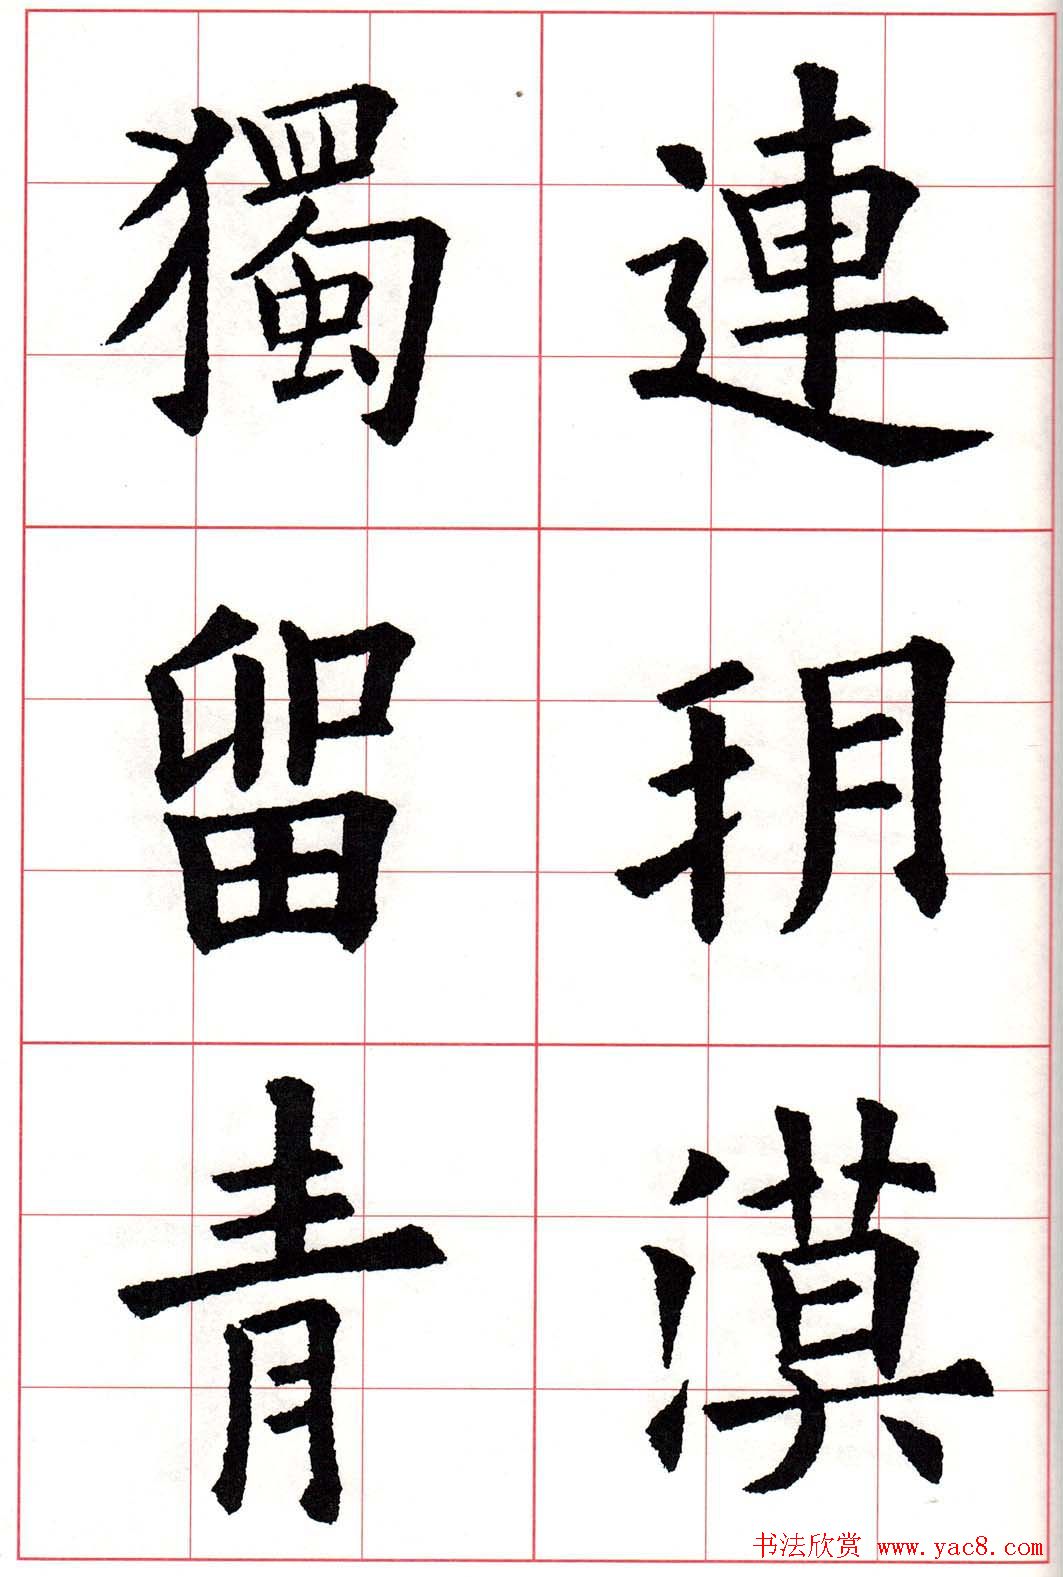 連朔漠
獨留青
书法欣赏 www.yac8.com